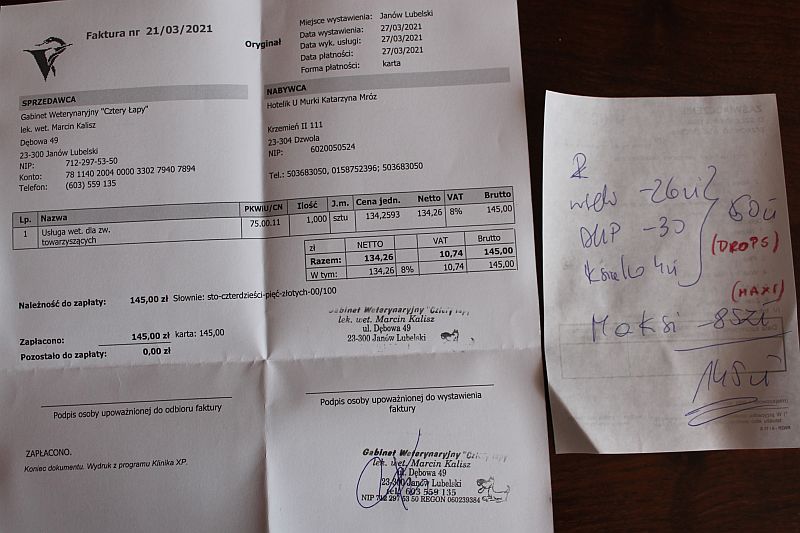 Faktura nr 21/03/2021
Oryginał
Miejsce wystawienia: Janów Lubelski
Data wystawienia: 27/03/2021
Data wyk. usługi: 27/03/2021
Data płatności: 27/03/2021
Forma płatności: karta
SPRZEDAWCA
Gabinet Weterynaryjny "Cztery Łapy"
lek. wet. Marcin Kalisz
Dębowa 49
23-300 Janów Lubelski
NIP: 712-297-53-50
Konto: 78 1140 2004 0000 3302 7940 7894
Telefon: (603) 559 135
NABYWCA
Hotelik U Murki Katarzyna Mróz
Krzemień II 111
23-304 Dzwola
NIP: 6020050524
Tel.: 503683050, 0158752396; 503683050
Lp. Nazwa PKWiU/CN Ilość J.m. Cena jedn. Netto VAT Brutto
1 Usługa wet. dla zw. towarzyszących 75.00.11 1,000 sztu 134,2593 134,26 8% 145,00
zł NETTO VAT Brutto
Razem: 134,26 10,74 145,00
W tym: 134,26 8% 10,74 145,00
Należność do zapłaty: 145,00 zł Słownie: sto-czterdzieści-pięć-złotych-00/100
Zapłacono: 145,00 zł karta: 145,00
Pozostało do zapłaty: 0,00 zł
Gabinet Weterynaryjny "Cztery Łapy"
lek. wet. Marcin Kalisz
ul. Dębowa 49
23-300 Janów Lubelski
Podpis osoby upoważnionej do odbioru faktury
Podpis osoby upoważnionej do wystawienia
faktury
ZAPŁACONO.
Koniec dokumentu. Wydruk z programu Klinika XP.
Gabinet Weterynaryjny "Cztery Łapy
lek. wet. Marcin Kalisz
ul. Dębowa 49
23-300 Janów Lubelski
tel. 603 559 135
NIP 712 297 53 50 REGON 060239384
-26zł
-30
4zł
60zł
(DROPS)
(MAXI)
Maksi -85zł
145zł